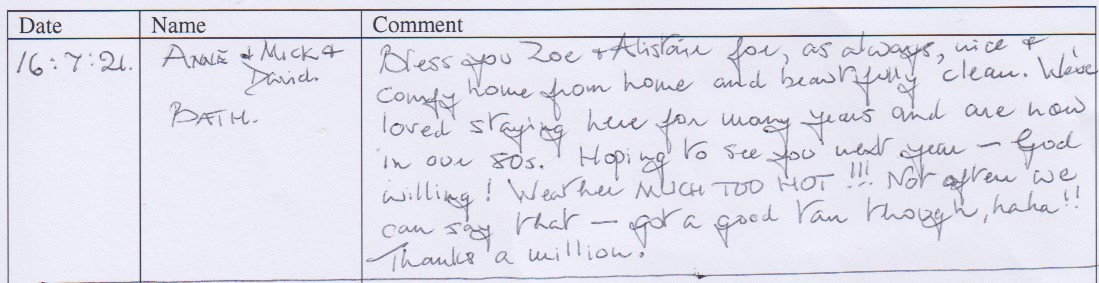 Date Name Comment
16:7:21. ANNE & MICK & Bless you Zoe & Alistair for, as always, nice &
David. comfy home from home and beautifully clean. We've
BATH. loved staying here for many years and are now
in our 80s. Hoping to see you next year – God
willing! Weather MUCH TOO HOT!!! Not often we
can say that – got a good tan though, haha!!
Thanks a million.